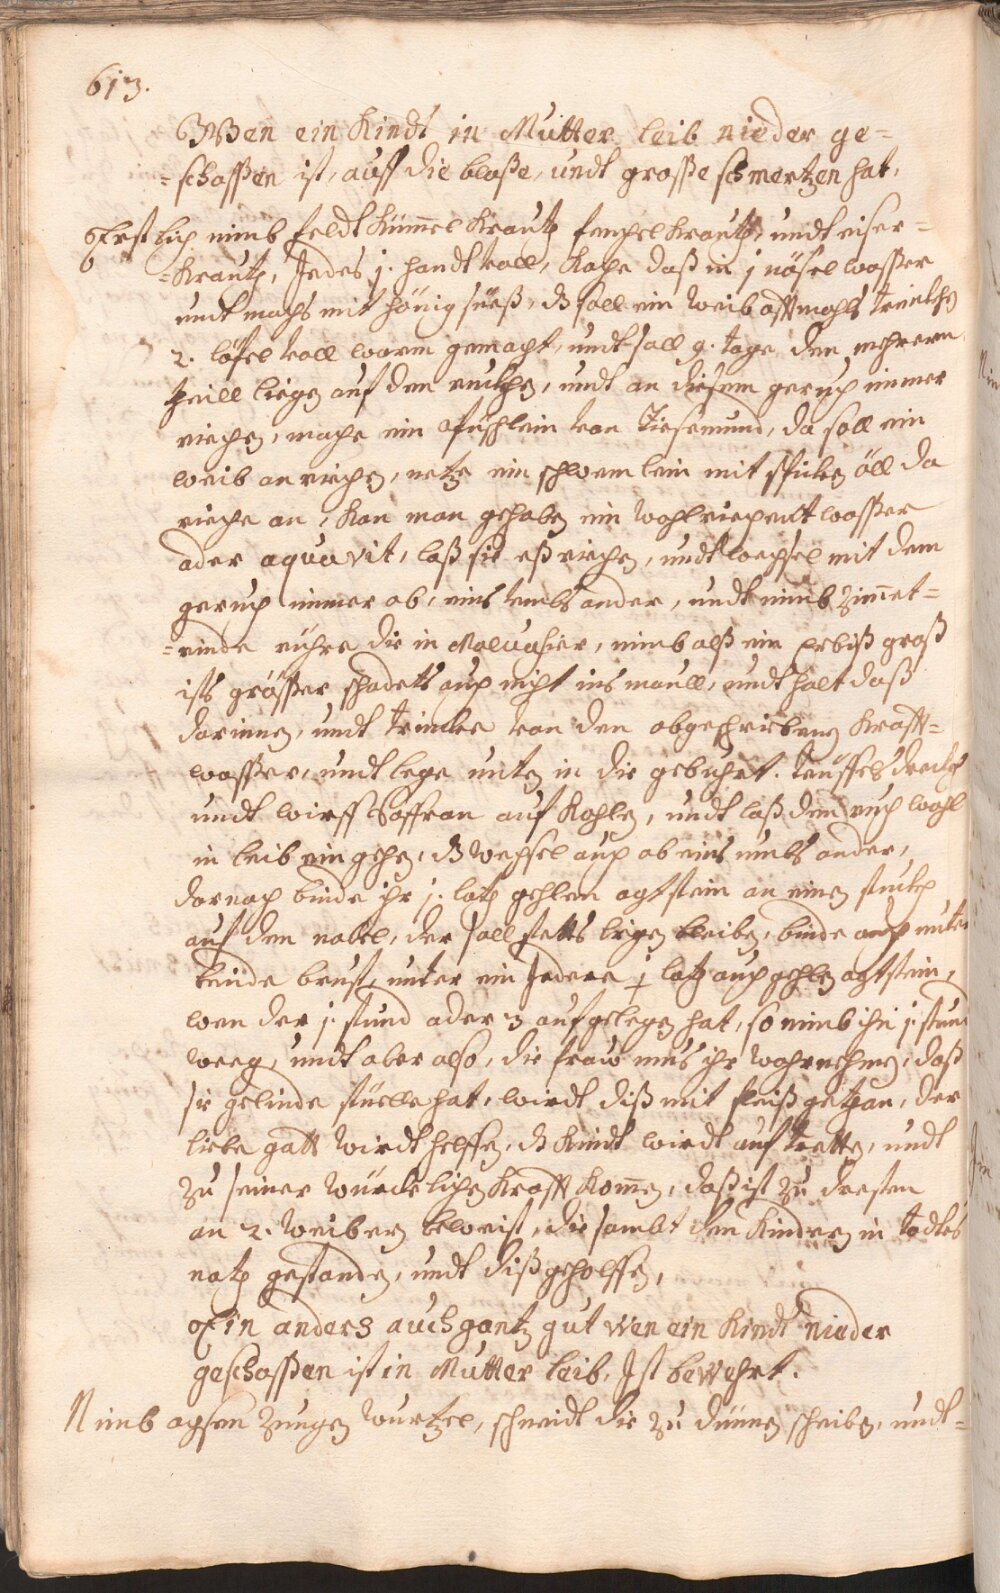 613.
Wen ein Kindt in Mutter leib nieder ge=
=schossen ist, auff die blase, undt grosse schmertzen hat,
Erstlich nimb feldt Kümmel Krauth fenchel Krauth, undt eiser=
=Krauth, Jedes j. handt voll, Koche daß in j nösel wasser
undt machs mit hönig süeß, dß soll ein weib offtmahls trincken
2. löfel voll warm gemacht, undt soll 9. tage den mehrern
theill liegen auf den rucken, undt an diesem geruch immer
riechen, mache ein Püschlein von Tiesemund, da soll ein
weib an riechen, netze ein schwemlein mit spicken öll da
rieche an, Kan man gehaben ein wohlriechent wasser
oder aquavit, laß sie eß riechen, undt wechsel mit dem
geruch immer ab, eins umbs ander, undt nimb Zimmet=
=rinde rühre die in Malvasier, nimb alß ein erbiß groß
ists grösser schadets auch nicht ins maull, undt halt daß
darinnen, undt trincke von den obgeschriebenen Krafft=
wasser, undt lege unten in die gebuhrt. teuffelsdreck
undt wirff Saffran auf Kohlen, undt laß den ruch wohl
in leib ein gehen, dß wechsel auch ab eins umbs ander,
darnach binde ihr j. loth gehlen agtstein an einen stuckh
auf den nabel, der soll stetts liegen bleiben, binde auch unter
beude brust, unter ein Jedere j loth auch gehlen agtstein,
wen der j. stund oder 3 aufgelegen hat, so nimb ihn j. stund
weeg, undt aber also, die fraw mus ihr wahrnehmen, daß
sie gelinde stüelle hat, wirdt diß mit fleiß gethan, der
liebe gott wirdt helffen, dß Kindt wirdt auf tretten, undt
zu seiner würcklichen Krafft Kommen, daß ist zu dresten
an 2. weibern beweist, die sambt den Kindern in todtes
noth gestanden, undt diß geholffen,
Ein anders auch gantz gut wen ein Kindt nieder
geschossen ist in Mutter leib, Ist bewehrt.
Nimb ogsen zungen wurtzel, schneidt die zu dünnen scheiben, undt=